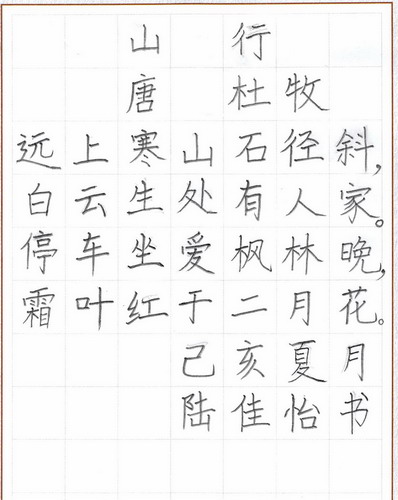 山行
唐 杜牧
远上寒山石径斜，
白云生处有人家。
停车坐爱枫林晚，
霜叶红于二月花。
己亥夏月
陆佳怡书